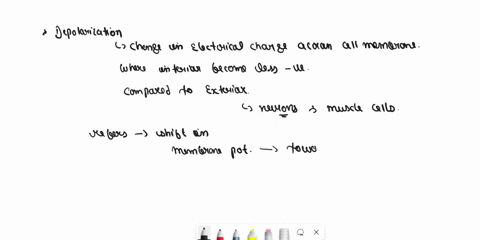 Depolarization
↳ change in Electrical charge across cell membrane.
where interior become less -ve.
compared to Exterior.
↳ neurons & muscle cells.
refers → shift in
membrane pot. → towa